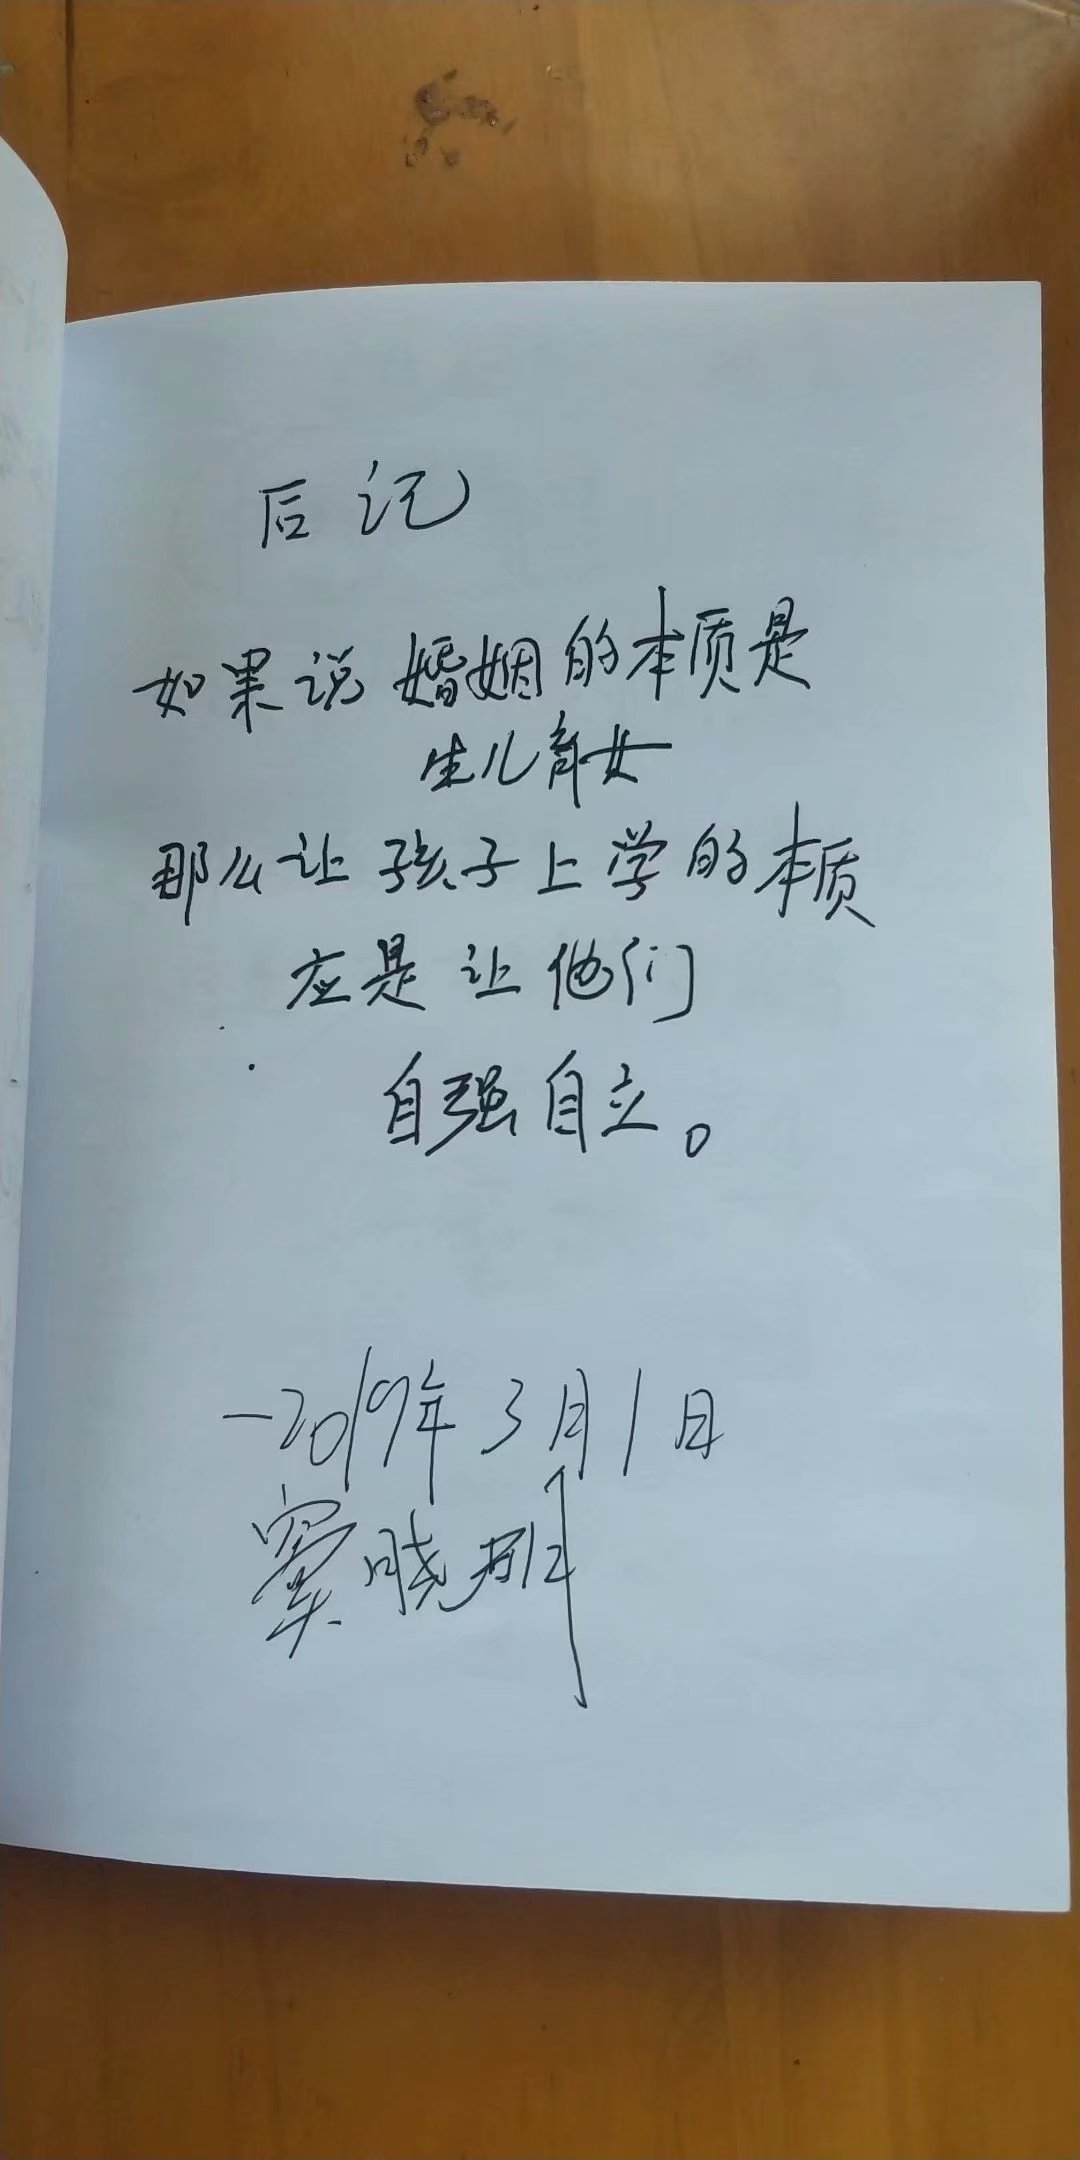 后记
如果说婚姻的本质是
生儿育女
那么让孩子上学的本质
应是让他们
自强自立。
-2019年3月1日
窦晓